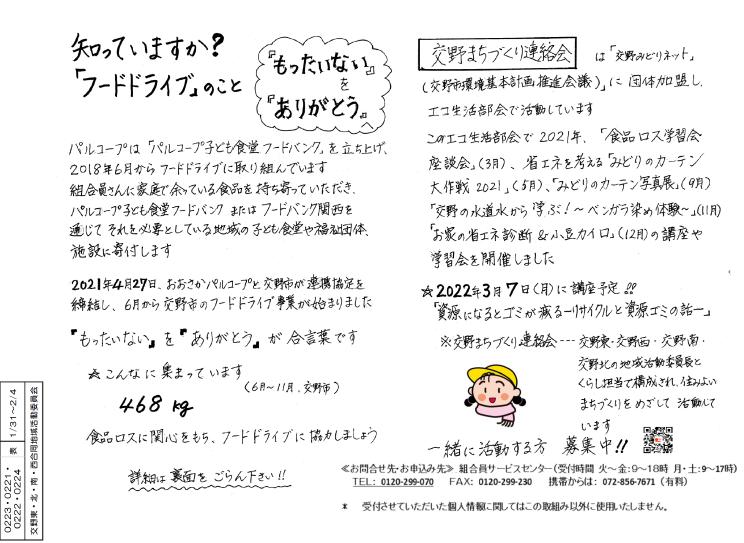 知っていますか?
「フードドライブ」のこと
『もったいない』
を
『ありがとう』
へ
パルコープは「パルコープ子ども食堂フードバンク」を立ち上げ、
2018年6月からフードドライブに取り組んでいます
組合員さんに家庭で余っている食品を持ち寄っていただき、
パルコープ子ども食堂フードバンクまたはフードバンク関西を
通じてそれを必要としている地域の子ども食堂や福祉団体、
施設に寄付します
2021年4月27日、おおさかパルコープと交野市が連携協定を
締結し、6月から交野市のフードドライブ事業が始まりました
『もったいない』を『ありがとう』が合言葉です
☆こんなに集まっています
(6月〜11月、交野市)
468kg
食品ロスに関心をもち、フードドライブに協力しましょう
詳細は裏面をごらん下さい!!
交野まちづくり連絡会 は「交野みどりネット」
(交野市環境基本計画推進会議)」に団体加盟し、
エコ生活部会で活動しています
このエコ生活部会で2021年、「食品ロス学習会
座談会」(3月)、省エネを考える「みどりのカーテン
大作戦2021」(5月)、「みどりのカーテン写真展」(9月)
「交野の水道水から学ぶ!〜ベンガラ染め体験〜」(11月)
「お家の省エネ診断&小豆カイロ」(12月)の講座や
学習会を開催しました
☆2022年3月7日(月)に講座予定!!
「資源になるとゴミが減るーリサイクルと資源ゴミの話ー」
※交野まちづくり連絡会---交野東・交野西・交野南・
交野北の地域活動委員長と
くらし担当で構成され、住みよい
まちづくりをめざして活動して
います
一緒に活動する方 募集中!!
≪お問合せ先・お申込み先≫ 組合員サービスセンター(受付時間 火〜金:9〜18時 月・土:9〜17時)
TEL: 0120-299-070 FAX: 0120-299-230 携帯からは: 072-856-7671 (有料)
* 受付させていただいた個人情報に関してはこの取組み以外に使用いたしません。
0223・0221・
0222・0224
表
1/31〜2/4
交野東・北・南・西合同地域活動委員会